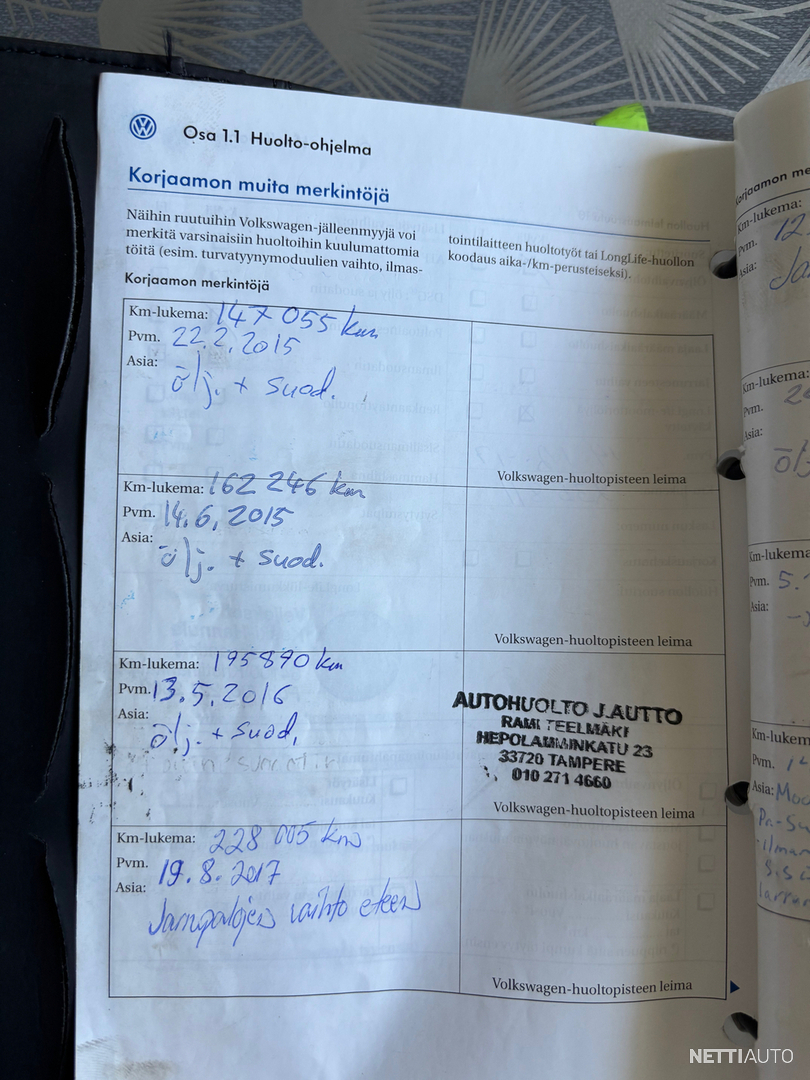 Osa 1.1 Huolto-ohjelma
Korjaamon muita merkintöjä
Näihin ruutuihin Volkswagen-jälleenmyyjä voi
merkitä varsinaisiin huoltoihin kuulumattomia
töitä (esim. turvatyynymoduulien vaihto, ilmas-
tointilaitteen huoltotyöt tai LongLife-huollon
koodaus aika-/km-perusteiseksi).
Korjaamon merkintöjä
Km-lukema: 147 055 km
Pvm. 22.2.2015
Asia:
ölj. + suod.
Volkswagen-huoltopisteen leima
Km-lukema: 162 246 km
Pvm. 14.6.2015
Asia:
ölj. + suod.
Volkswagen-huoltopisteen leima
Km-lukema: 195890 km
Pvm. 13.5.2016
Asia:
ölj. + suod.
AUTOHUOLTO J.AUTTO
RAMI TEELMÄKI
HEPOLAMMINKATU 23
33720 TAMPERE
010 271 4660
Volkswagen-huoltopisteen leima
Km-lukema: 228 005 km
Pvm. 19.8.2017
Asia:
Jarrupalojen vaihto eteen
Volkswagen-huoltopisteen leima
Korjaamon me
Km-lukema:
Pvm. 12.
Asia:
Km-lukema:
Pvm. 2
Asia:
öl
Km-lukema
Pvm. 5.
Asia:
Km-lukem
Pvm. 14
Asia: Moo
NETTIAUTO